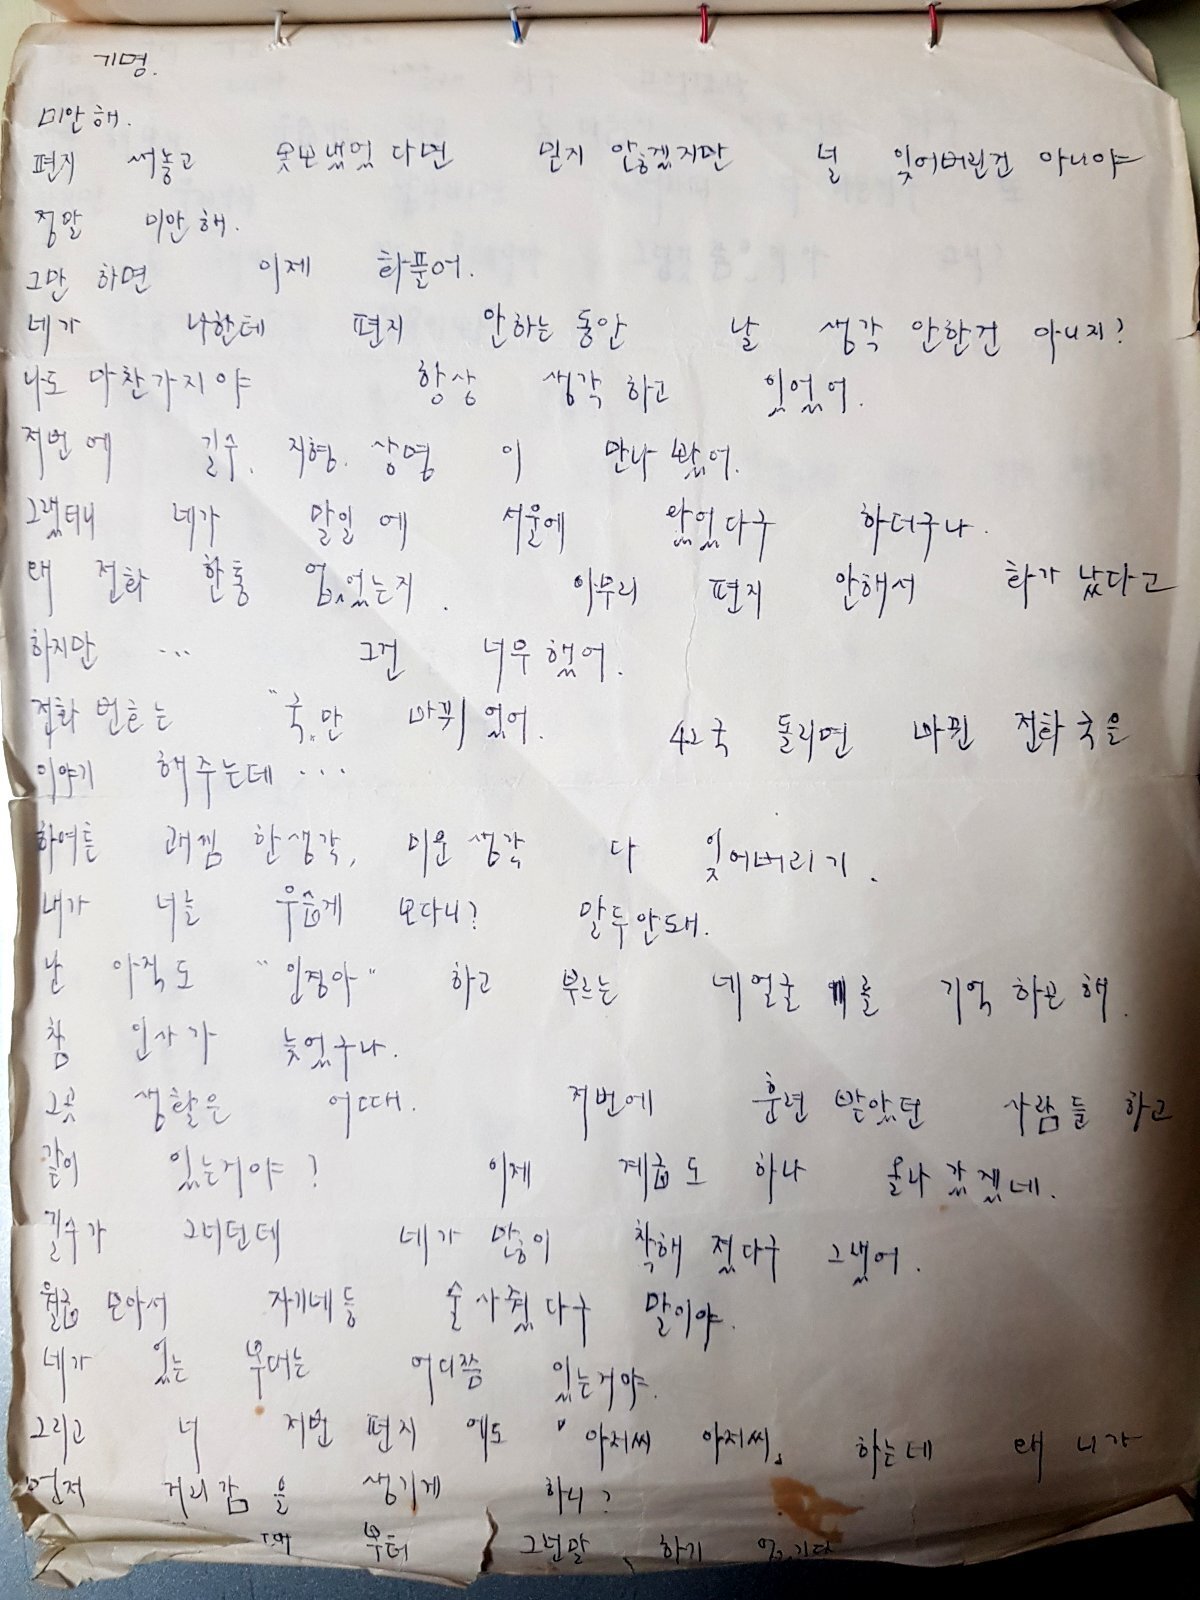 기명.
미안해.
편지 써놓고 못보냈었다면 믿지 안겠지만 널 잊어버린건 아니야
정말 미안해.
그만 하면 이제 화풀어.
네가 나한테 편지 안하는 동안 날 생각 안한건 아니지?
나도 마찬가지야 항상 생각 하고 있었어.
저번에 길수, 지형. 상명 이 만나 봤어.
그랬더니 네가 말일에 서울에 왔었다구 하더구나.
왜 전화 한통 없었는지. 아무리 편지 안해서 화가 났다고
하지만 ... 그건 너무했어.
전화 번호는 "국"만 바뀌었어. 42국 돌리면 바뀐 전화국을
이야기 해주는데 ...
하여튼 괘씸한생각, 미운생각 다 잊어버리기.
내가 너를 우습게 보다니? 말두안돼.
난 아직도 "인정아" 하고 부르는 네얼굴 를 기억 하곤 해.
참 인사가 늦었구나.
그곳 생활은 어때. 저번에 훈련 받았던 사람들 하고
같이 있는거야? 이제 계급도 하나 올라 갔겠네.
길수가 그러던데 네가 많이 착해 졌다구 그랬어.
월급 모아서 자기네들 술사줬다구 말이야.
네가 있는 부대는 어디쯤 있는거야.
그리고 너 저번 편지 에도 "아저씨 아저씨" 하는데 왜 니가
먼저 거리감을 생기게 하니?
부터 그런말 하기